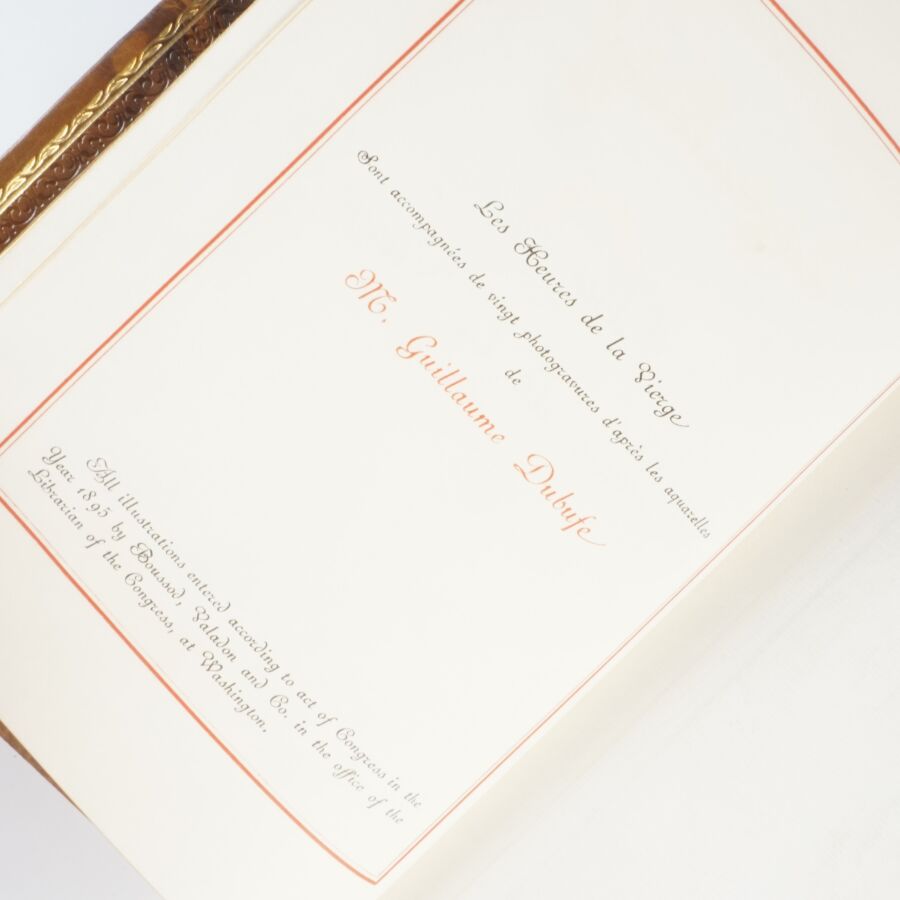 Les Heures de la Vierge
Sont accompagnées de vingt photogravures d'après les aquarelles
de
M. Guillaume Dubufe
All illustrations entered according to act of Congress in the
Year 1895 by Boussod, Valadon and Co. in the office of the
Librarian of the Congress, at Washington.